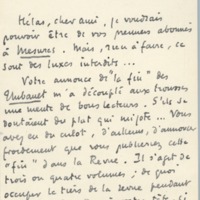 Hélas, cher ami, je voudrais
pouvoir être de vos premiers abonnés
à Mesures. Mais, rien à faire, ce
sont des luxes interdits...
Votre annonce de "la fin" des
Thibault m'a découplé aux trousses
une meute de bons lecteurs. S'ils se
doutaient du plat qui mijote... Vous
avez eu du culot, d'ailleurs, d'annoncer
froidement que vous publieriez cette
"fin" dans la Revue. Il s'agit de
trois ou quatre volumes ; de quoi
occuper le tiers de la revue pendant